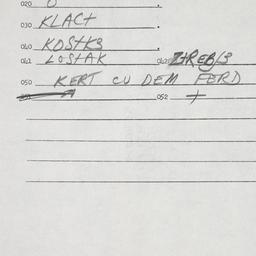 020 O
030 KLACT
040 KOSTK3
041 LOSTAK 042 ZTREB/3
050 KERT CU DEM FERD
052 +